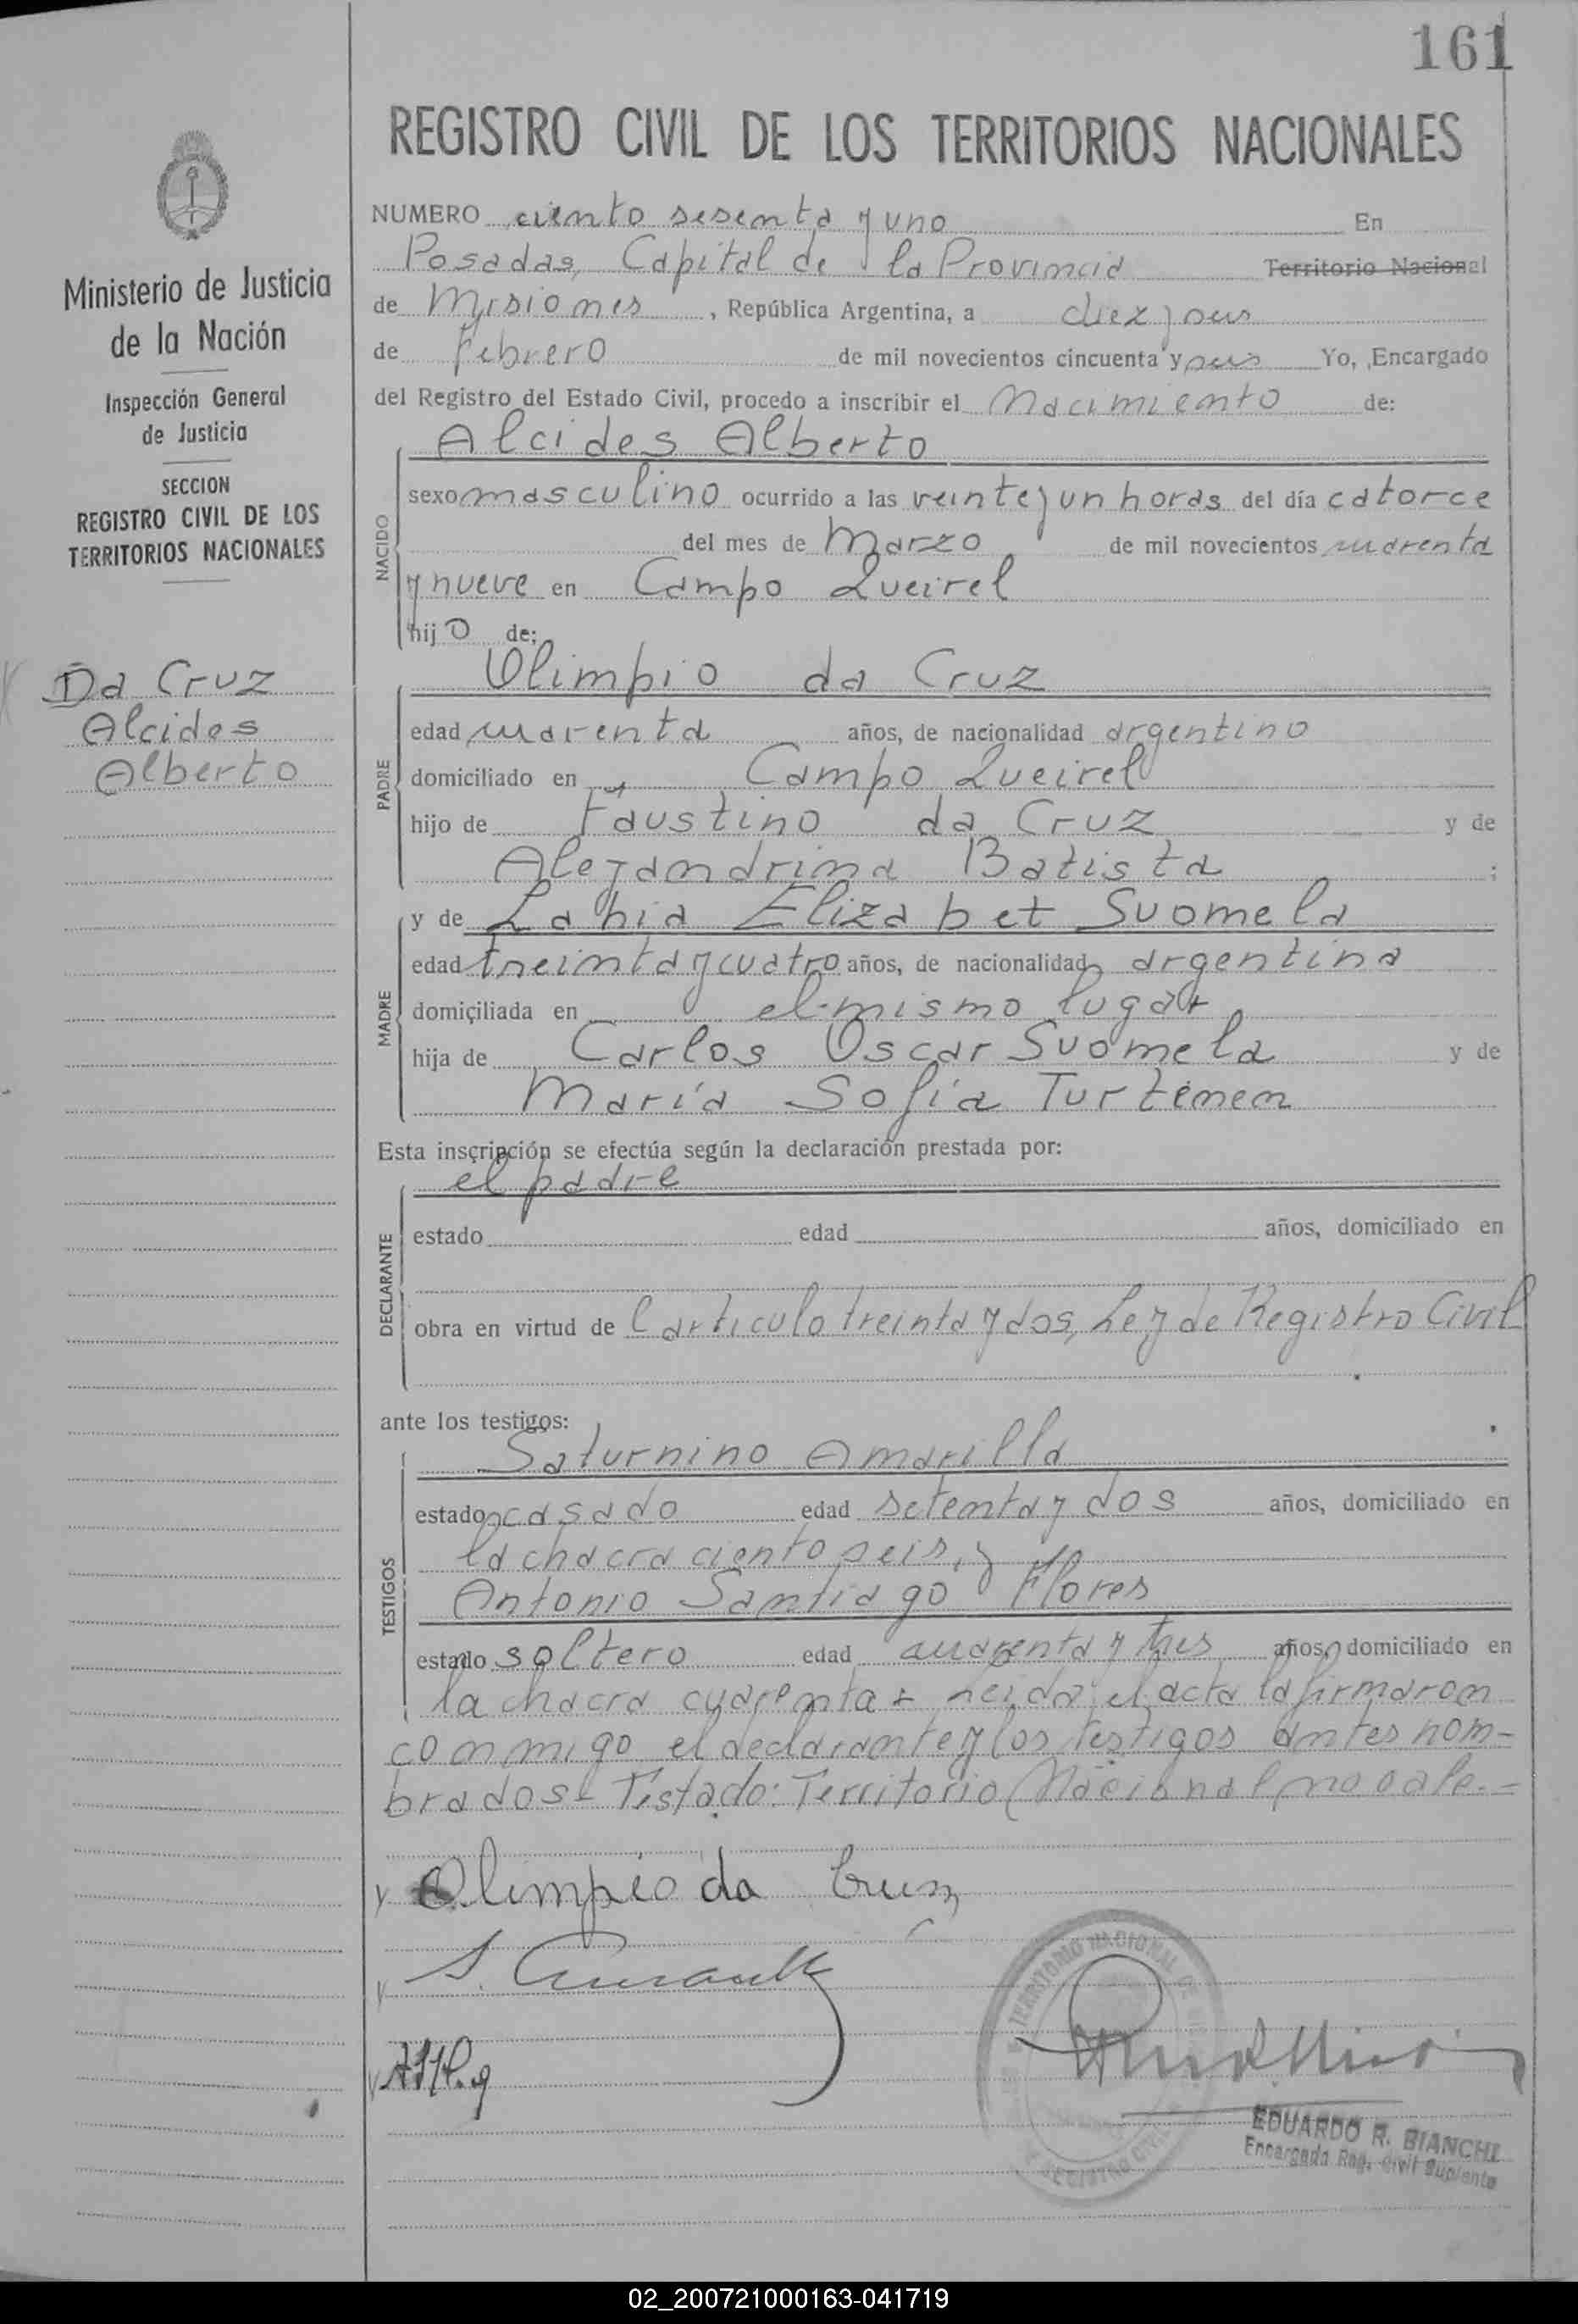 161
REGISTRO CIVIL DE LOS TERRITORIOS NACIONALES
Ministerio de Justicia
de la Nación
Inspección General
de Justicia
SECCION
REGISTRO CIVIL DE LOS
TERRITORIOS NACIONALES
Da Cruz
Alcides
Alberto
NUMERO ciento sesenta y uno En
Posadas, Capital de la Provincia Territorio Nacional
de Misiones, República Argentina, a diez y seis
de febrero de mil novecientos cincuenta y seis Yo, Encargado
del Registro del Estado Civil, procedo a inscribir el Nacimiento de:
NACIDO
Alcides Alberto
sexo masculino ocurrido a las veinte y un horas del día catorce
del mes de Marzo de mil novecientos cuarenta
y nueve en Campo Queirel
hijo de:
PADRE
Olimpio da Cruz
edad cuarenta años, de nacionalidad argentino
domiciliado en Campo Queirel
hijo de Faustino da Cruz y de
Alejandrina Batista ;
MADRE
y de Lahia Elizabet Suomela
edad treinta y cuatro años, de nacionalidad argentina
domiciliada en el mismo lugar
hija de Carlos Oscar Suomela y de
María Sofía Turtenen
Esta inscripción se efectúa según la declaración prestada por:
DECLARANTE
el padre
estado edad años, domiciliado en
obra en virtud de l articulo treinta y dos, Ley de Registro Civil
ante los testigos:
TESTIGOS
Saturnino Amarilla
estado casado edad setenta y dos años, domiciliado en
la chacra ciento seis, y
Antonio Santiago Flores
estado soltero edad cuarenta y tres años, domiciliado en
la chacra cuarenta - Leida el acta la firmaron
conmigo el declarante y los testigos antes nom-
brados - Testado: Territorio Nacional, no vale.=
Olimpio da Cruz
S.
TERRITORIO NACIONAL DE
REGISTRO CIVIL
EDUARDO R. BIANCHI
Encargado Reg. Civil Suplente
02_200721000163-041719